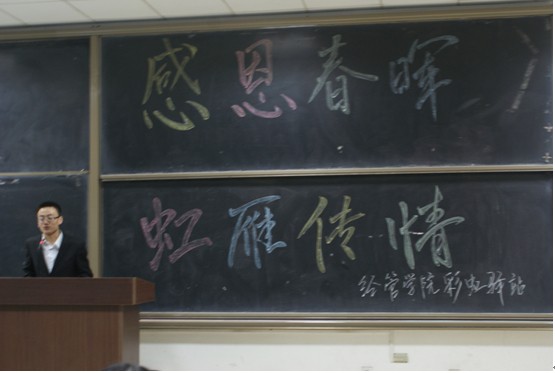 感恩春晖
虹雁传情
经管学院彩虹驿站